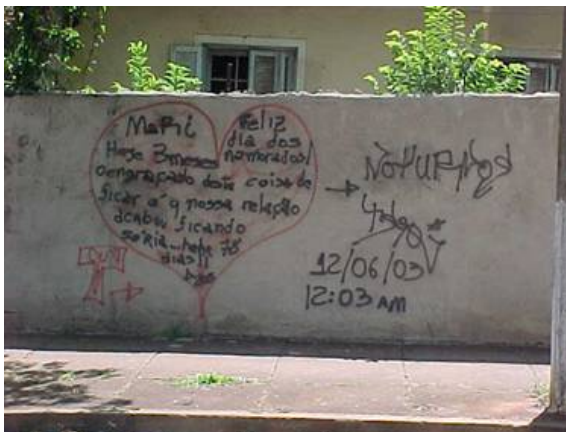 MaRi
Feliz
dia dos
namorados!
Hoje 3 meses
o engraçado desta coisa de
ficar é q nossa relação
acabou ficando
séria... hoje 78
dias!!
NOTURNOS
12/06/03
12:03 AM